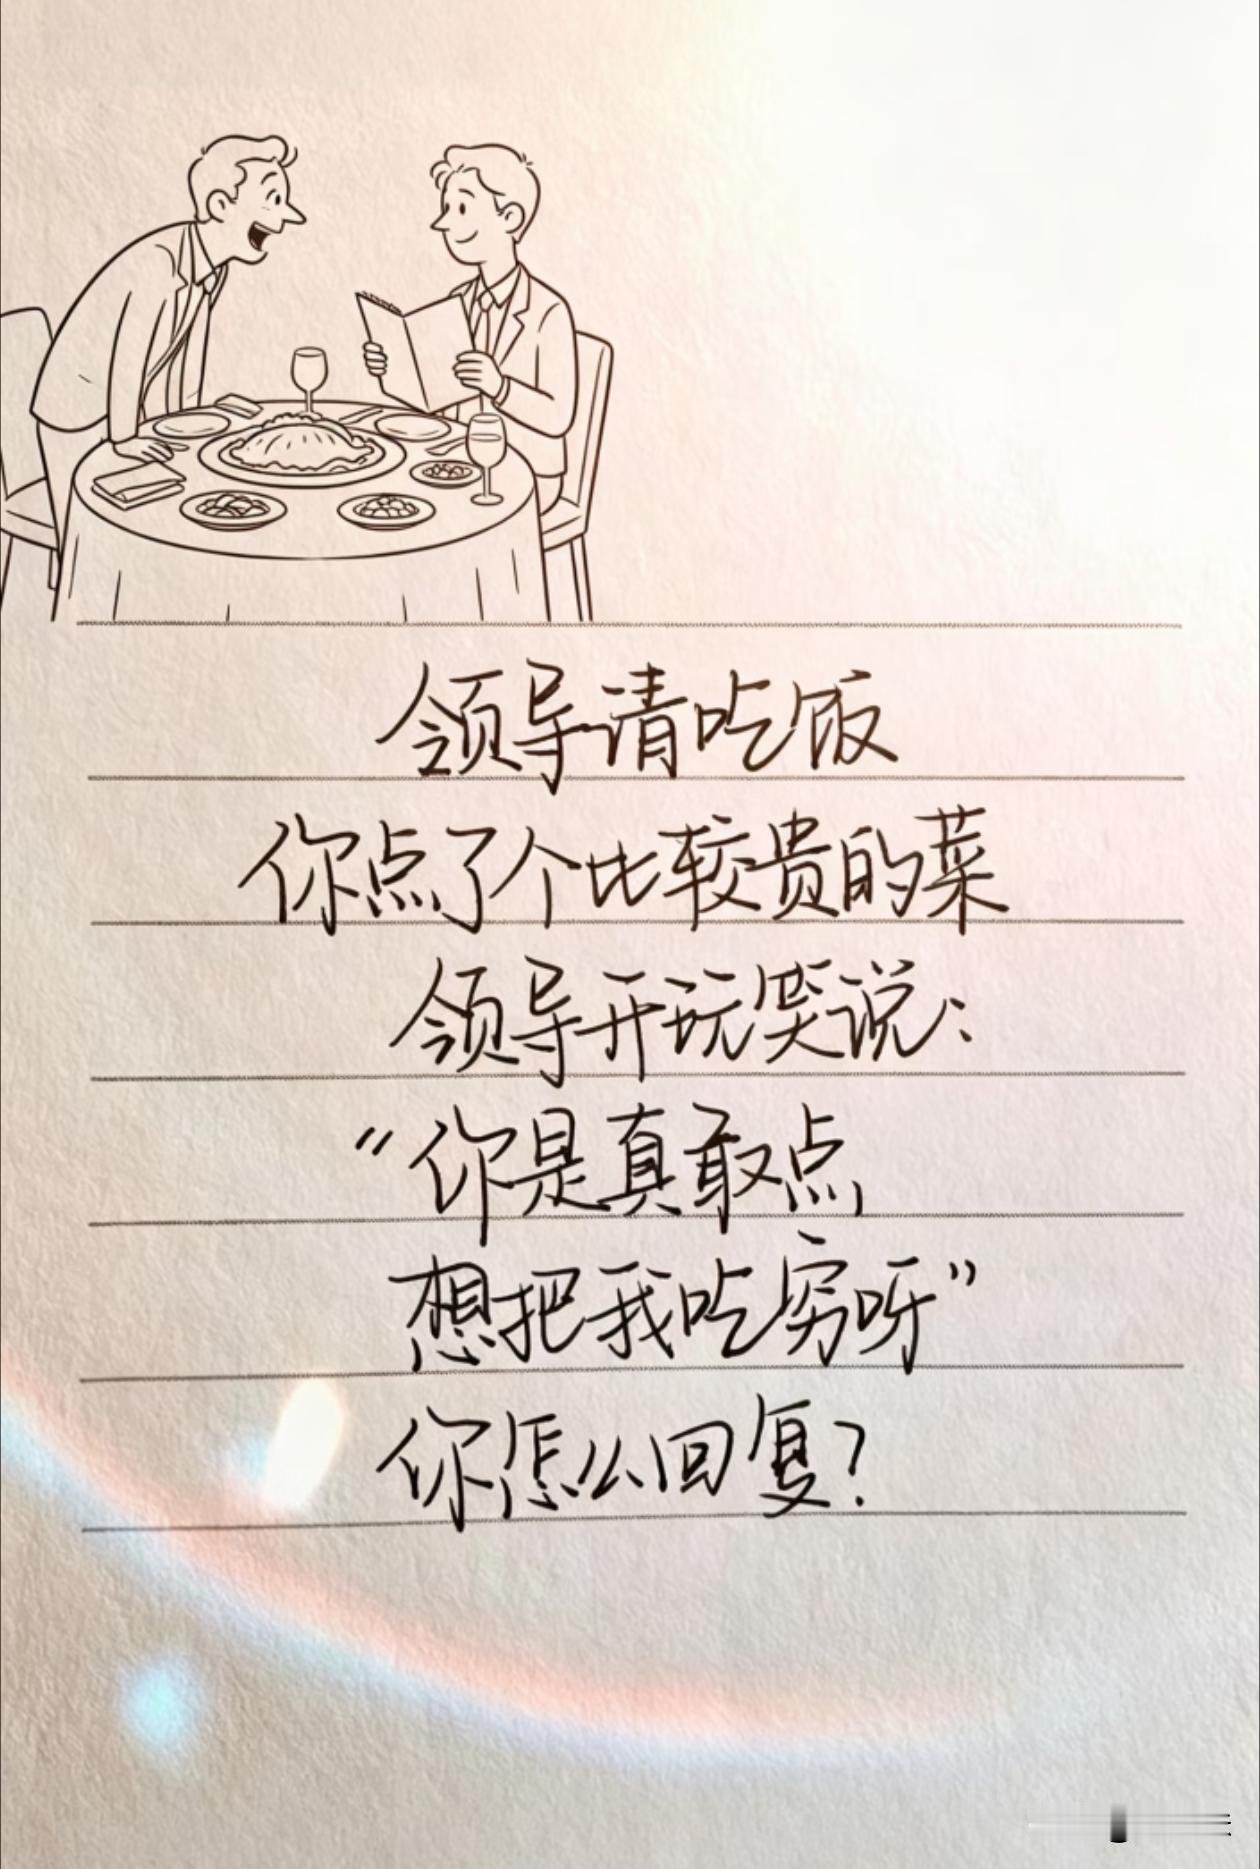 领导请吃饭
你点了个比较贵的菜
领导开玩笑说：
“你是真敢点
想把我吃穷呀”
你怎么回复？